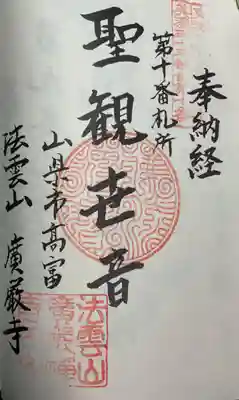 奉納経
第十番札所
聖観世音
山県市高富
法雲山 廣厳寺
法雲山